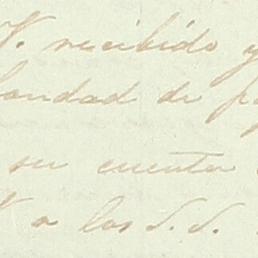 V. recibido y
bondad de p
su cuenta
a los S. S.